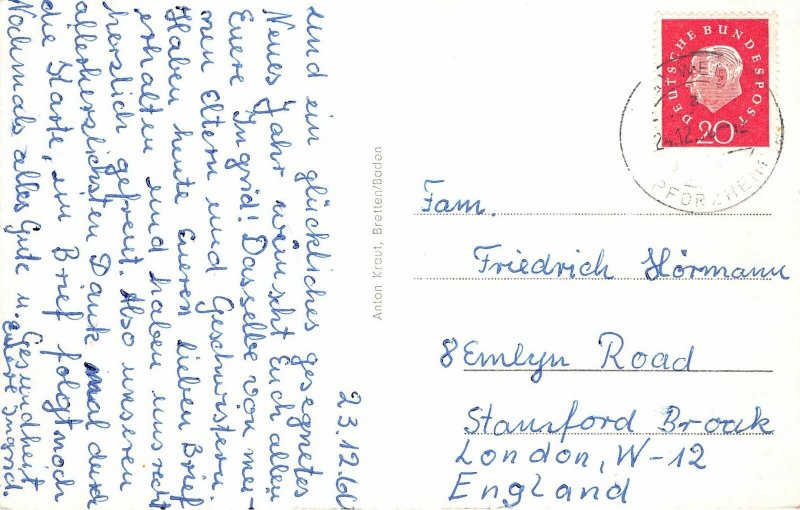 23.12.60
und ein glückliches gesegnetes
Neues Jahr wünscht Euch allen
Euere Ingrid! Dasselbe von mei-
nen Eltern und Geschwistern.
Haben heute Eueren lieben Brief
erhalten und haben uns recht
herzlich gefreut. Also unseren
allerherzlichsten Dank mal durch
die Karte, ein Brief folgt noch
Nochmals alles Gute u. Gesundheit
Euere Ingrid.
Anton Kraut, Bretten/Baden
DEUTSCHE BUNDESPOST
20
PFORZHEIM
Fam.
Friedrich Hörmann
8 Emlyn Road
Stansford Broak
London, W-12
England